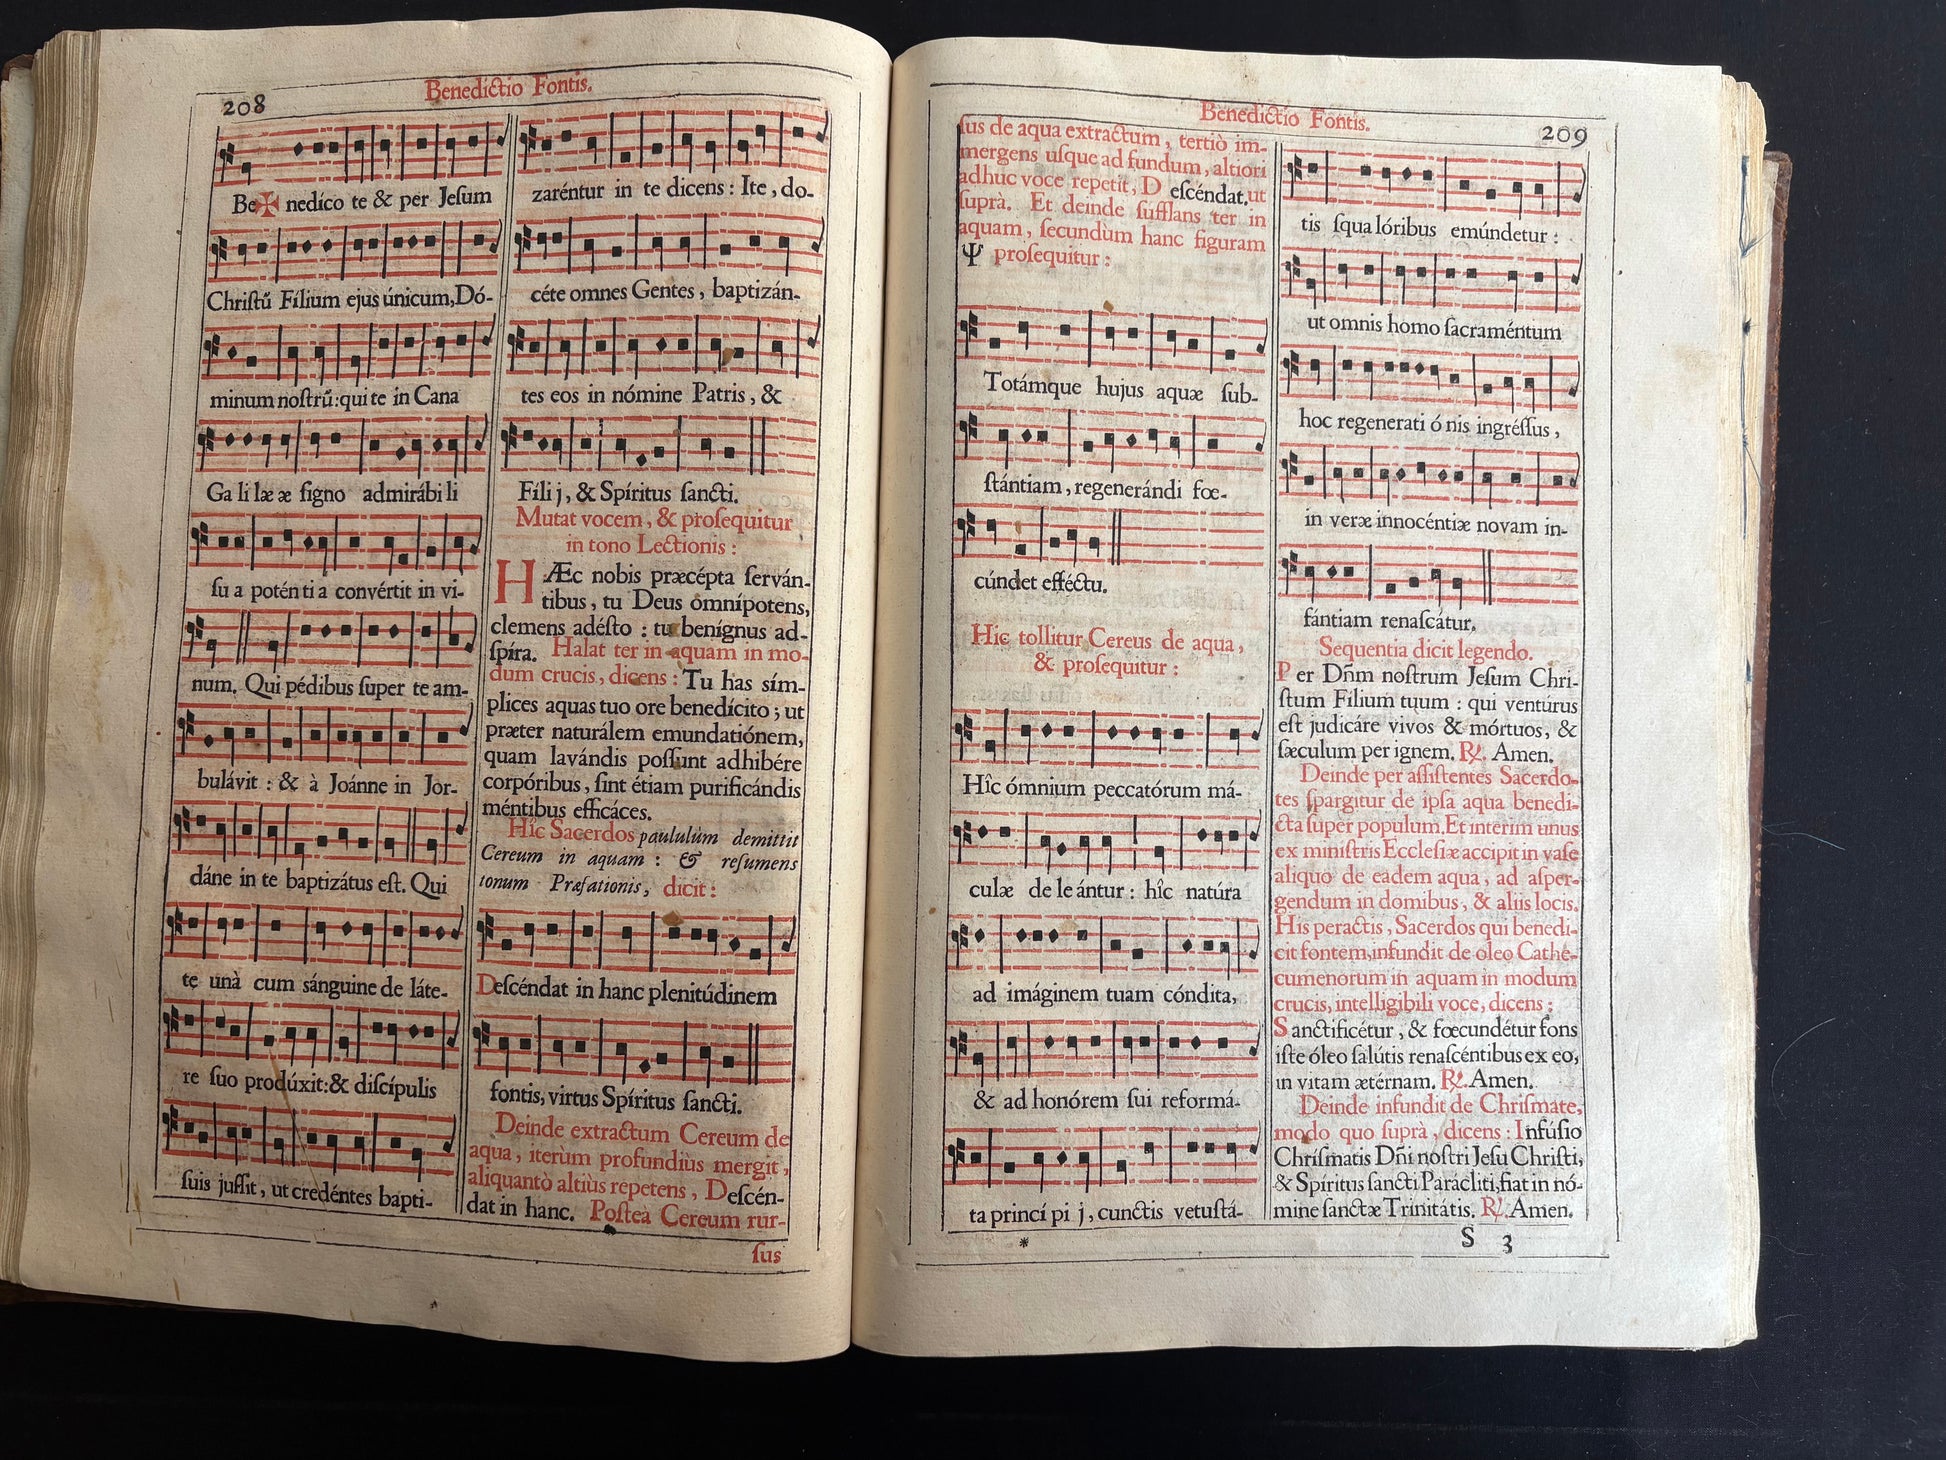 208
Benedictio Fontis.
Be✠ nedíco te & per Jeſum
Chriſtũ Fílium ejus únicum, Dó-
minum noſtrũ: qui te in Cana
Ga li læ æ ſigno admirábi li
ſu a poténti a convértit in vi-
num. Qui pédibus ſuper te am-
bulávit : & à Joánne in Jor-
dáne in te baptizátus eſt. Qui
te unà cum sánguine de láte-
re ſuo prodúxit: & diſcípulis
ſuis juſſit, ut credéntes bapti-
zaréntur in te dicens : Ite, do-
céte omnes Gentes, baptizán-
tes eos in nómine Patris, &
Fíli j, & Spíritus ſancti.
Mutat vocem, & proſequitur
in tono Lectionis :
HÆc nobis præcépta ſerván-
tibus, tu Deus omnípotens,
clemens adéſto : tu benígnus ad-
ſpíra. Halat ter in aquam in mo-
dum crucis, dicens : Tu has sím-
plices aquas tuo ore benedícito ; ut
præter naturálem emundatiónem,
quam lavándis poſſunt adhibére
corpóribus, ſint étiam purificándis
méntibus efficáces.
Hîc Sacerdos paululùm demittit
Cereum in aquam : & reſumens
tonum Præfationis, dicit :
Deſcéndat in hanc plenitúdinem
fontis, virtus Spíritus ſancti.
Deinde extractum Cereum de
aqua, iterùm profundiùs mergit,
aliquantò altiùs repetens, Deſcén-
dat in hanc. Poſteà Cereum rur-
ſus
Benedictio Fontis.
209
ſus de aqua extractum, tertiò im-
mergens uſque ad fundum, altiori
adhuc voce repetit, D eſcéndat. ut
ſuprà. Et deinde ſufflans ter in
aquam, ſecundùm hanc figuram
Ψ proſequitur :
Totámque hujus aquæ ſub-
ſtántiam, regenerándi fœ-
cúndet efféctu.
Hic tollitur Cereus de aqua,
& proſequitur :
Hîc ómnium peccatórum má-
culæ de le ántur : hîc natúra
ad imáginem tuam cóndita,
& ad honórem ſui reformá-
ta princí pi j, cunctis vetuſtá-
*
tis ſqua lóribus emúndetur :
ut omnis homo ſacraméntum
hoc regenerati ó nis ingréſſus,
in veræ innocéntiæ novam in-
fántiam renaſcátur.
Sequentia dicit legendo.
P er Dñm noſtrum Jeſum Chri-
ſtum Fílium tuum : qui ventúrus
eſt judicáre vivos & mórtuos, &
ſæculum per ignem. ℟. Amen.
Deinde per aſſiſtentes Sacerdo-
tes ſpargitur de ipſa aqua benedi-
cta ſuper populum. Et interim unus
ex miniſtris Eccleſiæ accipit in vaſe
aliquo de eadem aqua, ad aſper-
gendum in domibus, & aliis locis.
His peractis, Sacerdos qui benedi-
cit fontem, infundit de oleo Cathe-
cumenorum in aquam in modum
crucis, intelligibili voce, dicens :
S anctificétur, & fœcundétur fons
iſte óleo ſalútis renaſcéntibus ex eo,
in vitam ætérnam. ℟. Amen.
Deinde infundit de Chriſmate,
modo quo ſuprà, dicens : Infúſio
Chríſmatis Dñi noſtri Jeſu Chriſti,
& Spíritus ſancti Parácliti, fiat in nó-
mine ſanctæ Trinitátis. ℟. Amen.
S 3